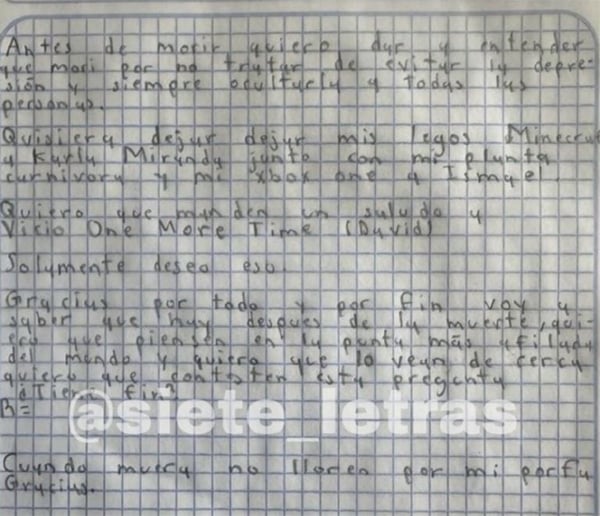 Antes de morir quiero dar y entender
que mori por no tratar de evitar la depre-
sión y siempre ocultarla a todas las
personas.
Quisiera dejar dejar mis legos Minecraf
a Karla Miranda junto con mi planta
carnivora y mi xbox one a Ismael.
Quiero que manden un saludo a
Vicio One More Time (David)
Solamente deseo eso.
Gracias por todo y por fin voy a
saber que hay despues de la muerte, qui-
ero que piensen en la punta más afilada
del mundo y quiero que lo vean de cerca
quiero que contesten esta pregenta
¿Tiene fin?
R=
@siete_letras
Cuando muera no lloren por mi porfa
Gracias.